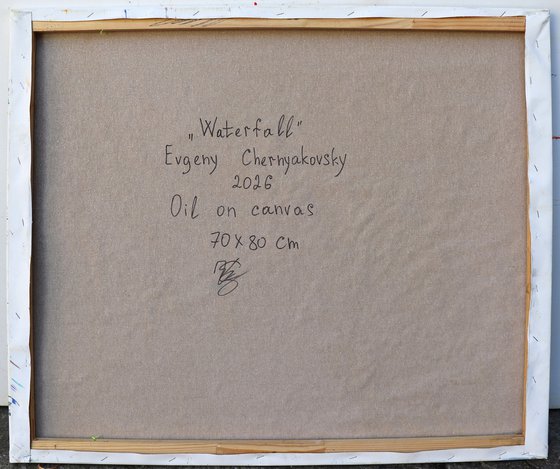 „Waterfall"
Evgeny Chernyakovsky
2026
Oil on canvas
70 x 80 cm